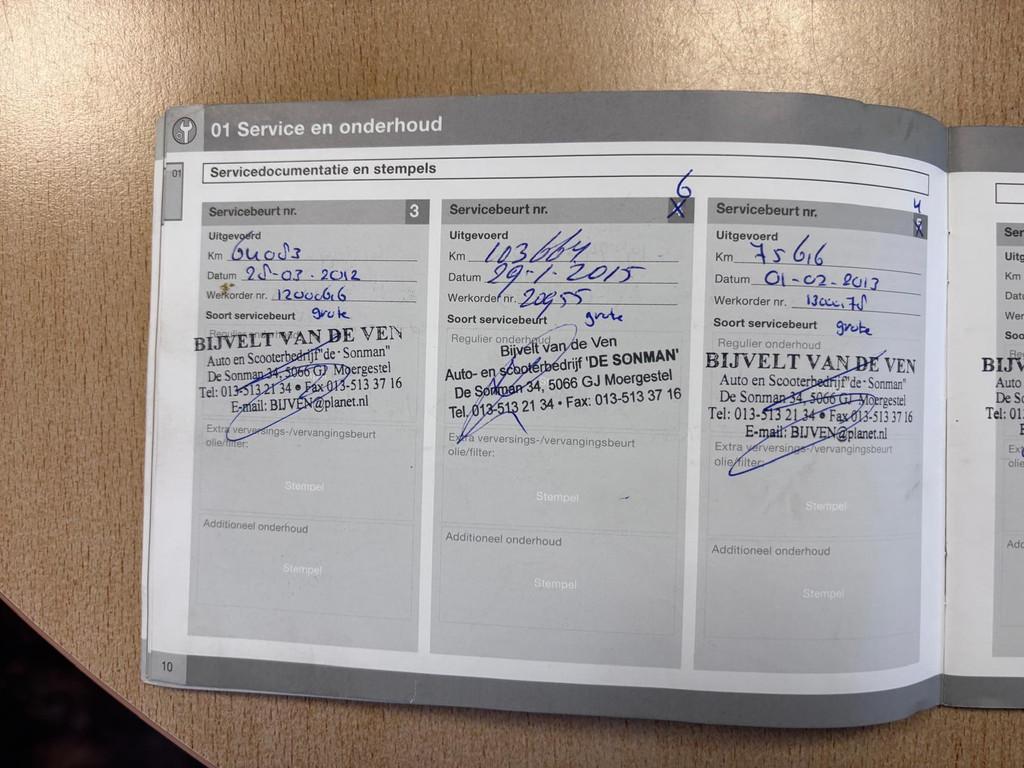 01 Service en onderhoud
01
Servicedocumentatie en stempels
Servicebeurt nr. 3
Uitgevoerd
Km 64083
Datum 28-03-2012
Werkorder nr. 12000616
Soort servicebeurt
grote
Regulier onderhoud
BIJVELT VAN DE VEN
Auto en Scooterbedrijf "de - Sonman"
De Sonman 34, 5066 GJ Moergestel
Tel: 013-513 21 34 • Fax 013-513 37 16
E-mail: BIJVEN@planet.nl
Extra verversings-/vervangingsbeurt
olie/filter:
Stempel
Additioneel onderhoud
Stempel
6
Servicebeurt nr.
Uitgevoerd
Km 103664
Datum 29-1-2015
Werkorder nr. 20955
Soort servicebeurt
grote
Regulier onderhoud
Bijvelt van de Ven
Auto- en scooterbedrijf 'DE SONMAN'
De Sonman 34, 5066 GJ Moergestel
Tel. 013-513 21 34 • Fax: 013-513 37 16
Extra verversings-/vervangingsbeurt
olie/filter:
Stempel
Additioneel onderhoud
Stempel
4
Servicebeurt nr.
Uitgevoerd
Km 75616
Datum 01-02-2013
Werkorder nr.
Soort servicebeurt
grote
Regulier onderhoud
BIJVELT VAN DE VEN
Auto en Scooterbedrijf "de - Sonman"
De Sonman 34, 5066 GJ Moergestel
Tel: 013-513 21 34 • Fax 013-513 37 16
E-mail: BIJVEN@planet.nl
Extra verversings-/vervangingsbeurt
olie/filter:
Stempel
Additioneel onderhoud
Stempel
10
Ser
Uitg
Km
Dat
We
Soo
Re
BIJV
Tel: 01
Ext
olie
Adc